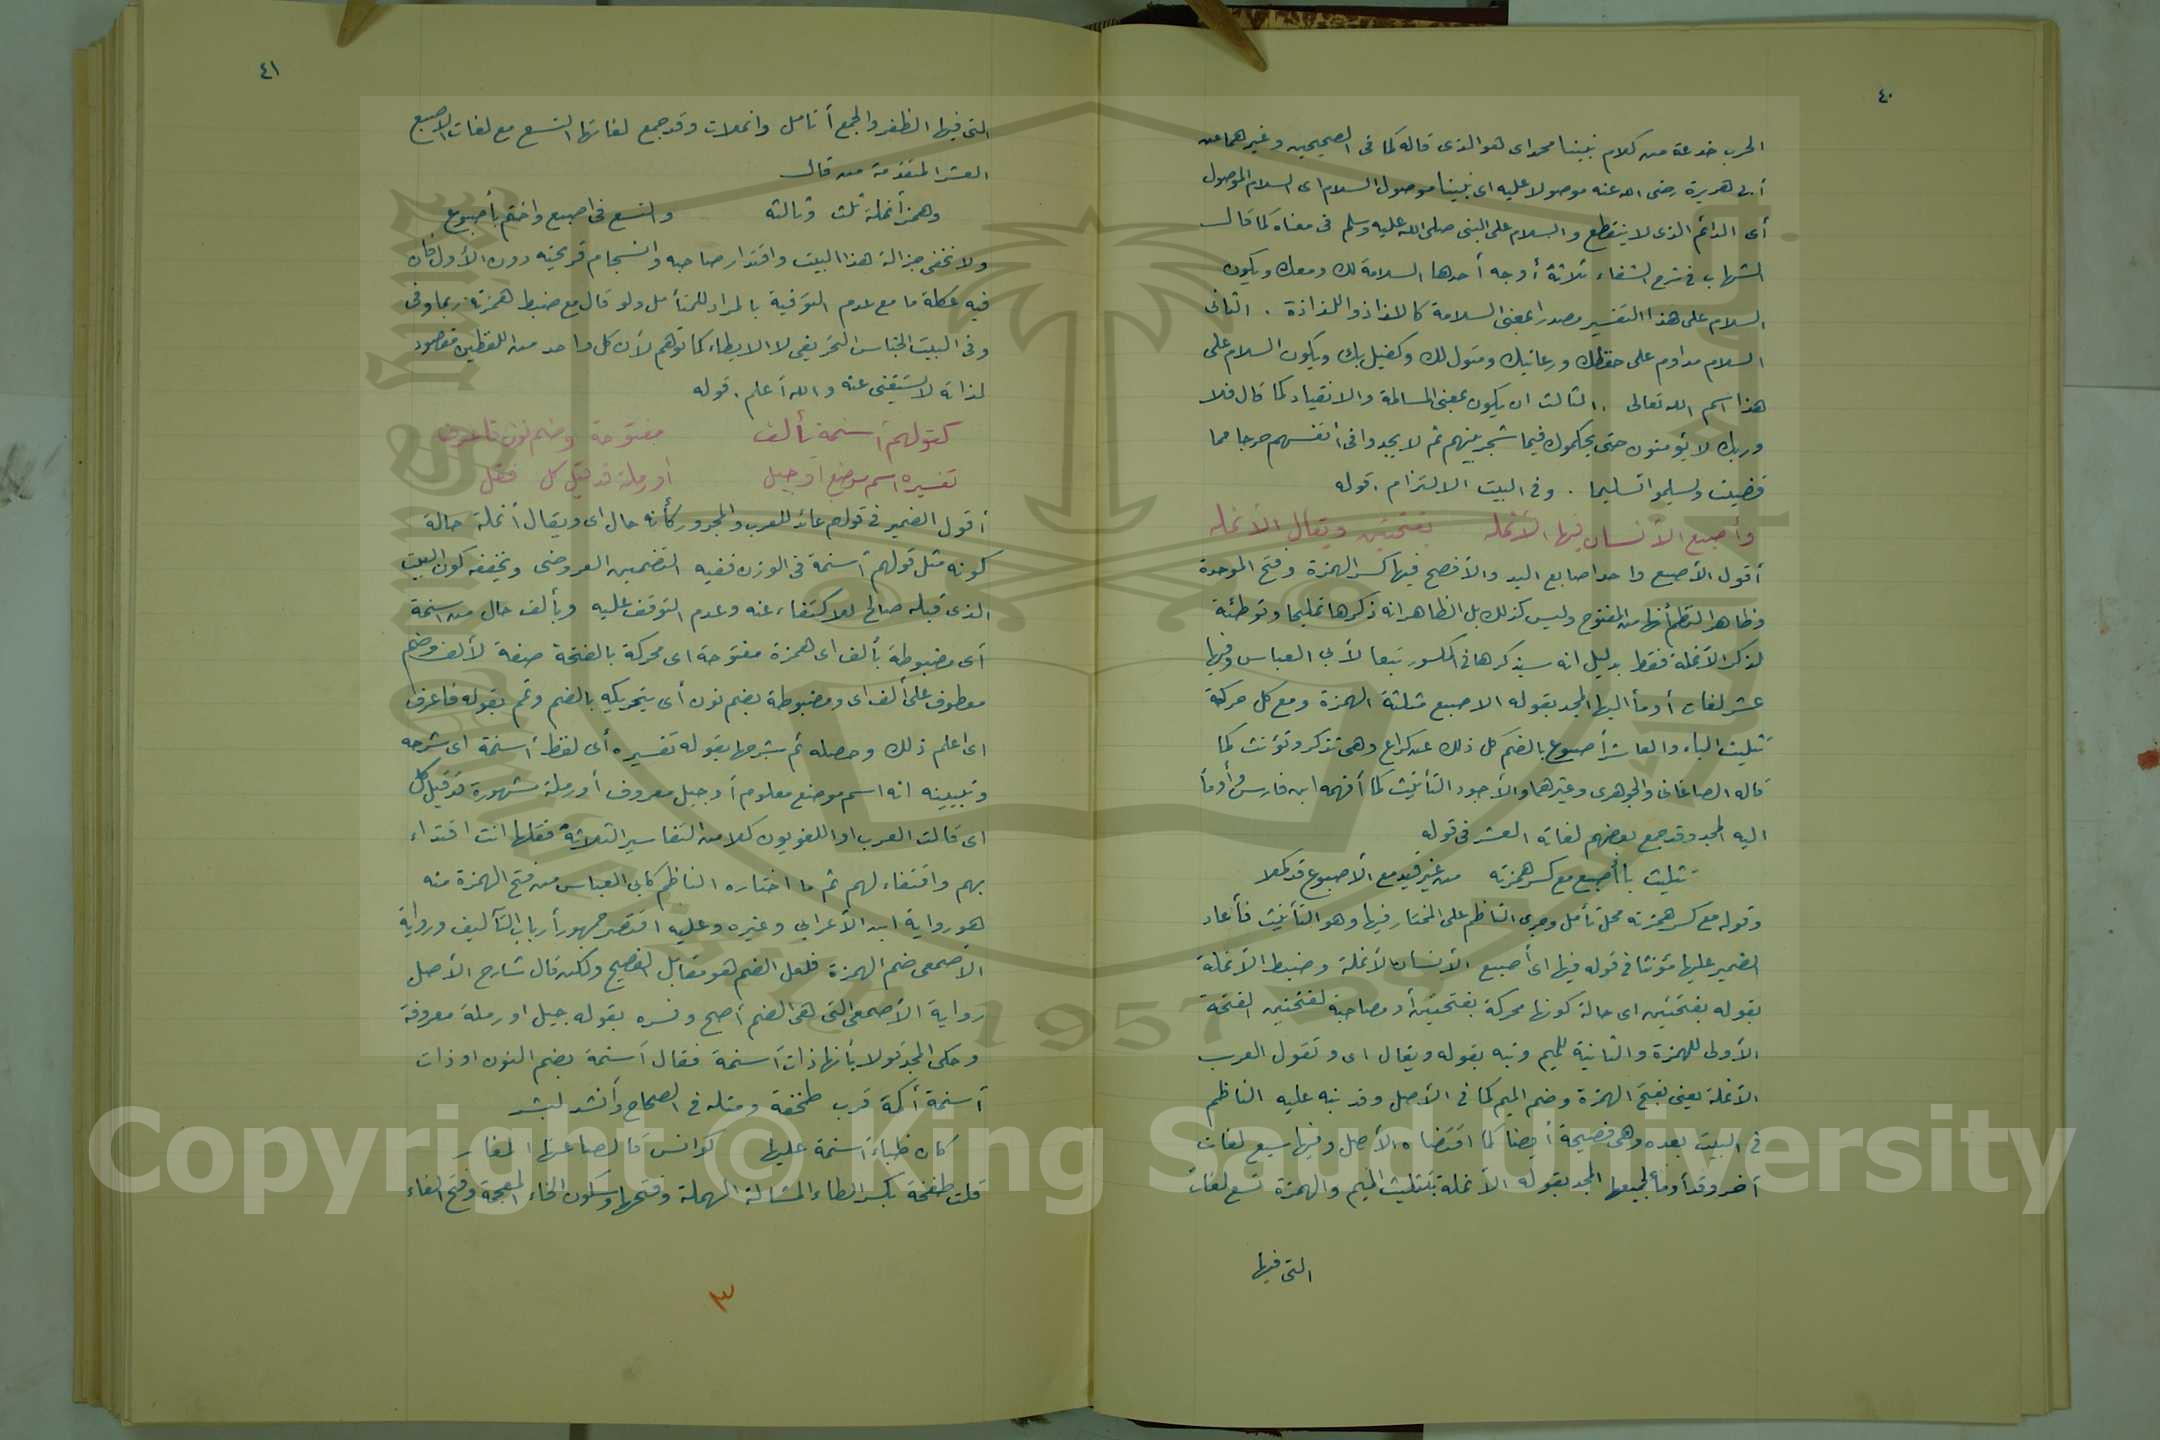 ٤٠
الحرب خدعة من كلام نبينا محمد اى هو الذى قاله كما فى الصحيحين وغيرهما عن
أبى هريرة رضى الله عنه موصولا عليه اى نبينا موصول السلام اى السلام الموصول
أى الدائم الذى لا ينقطع والسلام على النبى صلى الله عليه وسلم فى معناه كما قال
الشهاب فى شرح الشفاء ثلاثة أوجه أحدها السلامة لك ومعك ويكون
السلام على هذا التفسير مصدرا بمعنى السلامة كاللذاذ واللذاذة . الثانى
السلام مداوم على حفظك ورعايتك ومتول لك وكفيل بك ويكون السلام على
هذا اسم الله تعالى . الثالث ان يكون بمعنى المسالمة والانقياد كما قال فلا
وربك لا يؤمنون حتى يحكموك فيما شجر بينهم ثم لا يجدوا فى أنفسهم حرجا مما
قضيت ويسلموا تسليما . وفى البيت الالتزام . قوله
وأصبع الأنسان فيها الأنمله بفتحتين ويقال الأنمله
أقول الأصبع واحد اصابع اليد والأفصح فيها كسر الهمزة وفتح الموحدة
وظاهر النظم أنها من المفتوح وليس كذلك بل الظاهر انه ذكرها تمليحا وتوطئة
لذكر الأنملة فقط بدليل انه سيذكرها فى المكسور تبعا لأبى العباس وفيها
عشر لغات أومأ اليها المجد بقوله الاصبع مثلثة الهمزة ومع كل حركة
تثليث الباء والعاشر أصبوع بالضم كل ذلك عن كراع وهى تذكر وتؤنث كما
قاله الصاغانى والجوهرى وغيرهما والأجود التأنيث كما أفهمه ابن فارس وأومأ
اليه المجد وقد جمع بعضهم لغاته العشر فى قوله
تثليث با أصبع مع كسر همزته من غير قيد مع الأصبوع قد كملا
وقوله مع كسر همزته محل تأمل وجرى الناظم على المختار فيها وهو التأنيث فأعاد
الضمير عليها مؤنثا فى قوله فيها اى أصبع الأنسان الأنملة وضبط الأنملة
بقوله بفتحتين اى حالة كونها محركة بفتحتين أو مصاحبة لفتحتين الفتحة
الأولى للهمزة والثانية للميم ونبه بقوله ويقال اى وتقول العرب
الأنملة يعنى بفتح الهمزة وضم الميم كما فى الأصل وقد نبه عليه الناظم
فى البيت بعده وهى فصيحة أيضا كما اقتضاه الأصل وفيها سبع لغات
أخر وقد أومأ لجميعها المجد بقوله الأنملة بتثليث الميم والهمزة تسع لغات
التى فيها
٤١
التى فيها الظفر والجمع أنامل وانملات وقد جمع لغاتها التسع مع لغات الاصبع
العشر المتقدمة من قال
وهمز أنملة ثلث وثالثه والتسع فى اصبع واختم بأصبوع
ولا تخفى جزالة هذا البيت واقتدار صاحبه وانسجام قريحته دون الأول فان
فيه عكلة ما مع عدم التوفية بالمراد للمتأمل ولو قال مع ضبط همزته ربما وفى
وفى البيت الجناس التحريفى لا الايطاء كما توهم لأن كل واحد من اللفظين مقصود
لذاته لا يستغنى عنه والله أعلم . قوله
كقولهم أسنمة بألف مفتوحة وضم نون فاعرف
تفسيره اسم موضع أو جبل أو رملة قد قيل كل فقل
أقول الضمير فى قولهم عائد للعرب والمجرور كأنه حال اى ويقال أنملة حالة
كونه مثل قولهم أسنمة فى الوزن ففيه التضمين العروضى ويخففه كون البيت
الذى قبله صالح للاكتفاء عنه وعدم التوقف عليه وبألف حال من اسنمة
أى مضبوطة بألف اى همزة مفتوحة اى محركة بالفتحة صفة لألف وضم
معطوف على ألف اى ومضبوطة بضم نون أى بتحريكه بالضم وتمم بقوله فاعرف
اى اعلم ذلك وحصله ثم شرحها بقوله تفسيره أى لفظ أسنمة اى شرحه
وتبيينه انه اسم موضع معلوم أو جبل معروف أو رملة مشهورة قد قيل كل
اى قالت العرب او اللغويون كلا من التفاسير الثلاثة فقلها انت اقتداء
بهم واقتفاء لهم ثم ما اختاره الناظم كابى العباس من فتح الهمزة منه
هو رواية ابن الأعرابى وغيره وعليه اقتصر جمهور أرباب التآليف ورواية
الأصمعى ضم الهمزة فلعل الضم هو مقابل الفصيح ولكن قال شارح الأصل
رواية الأصمعى التى هى الضم أصح وفسره بقوله جبل او رملة معروفة
وحكى المجد قولا بأنها ذات أسنمة فقال أسنمة بضم النون او ذات
أسنمة أكمة قرب طخفة ومثله فى الصحاح وأنشد لبشر
كان ظباء أسنمة عليها كوانس قالصا عنها المغار
قلت طخفة بكسر الطاء المشالة المهملة وفتحها وسكون الخاء المعجمة وفتح الفاء
٣
Copyright © King Saud University
1957